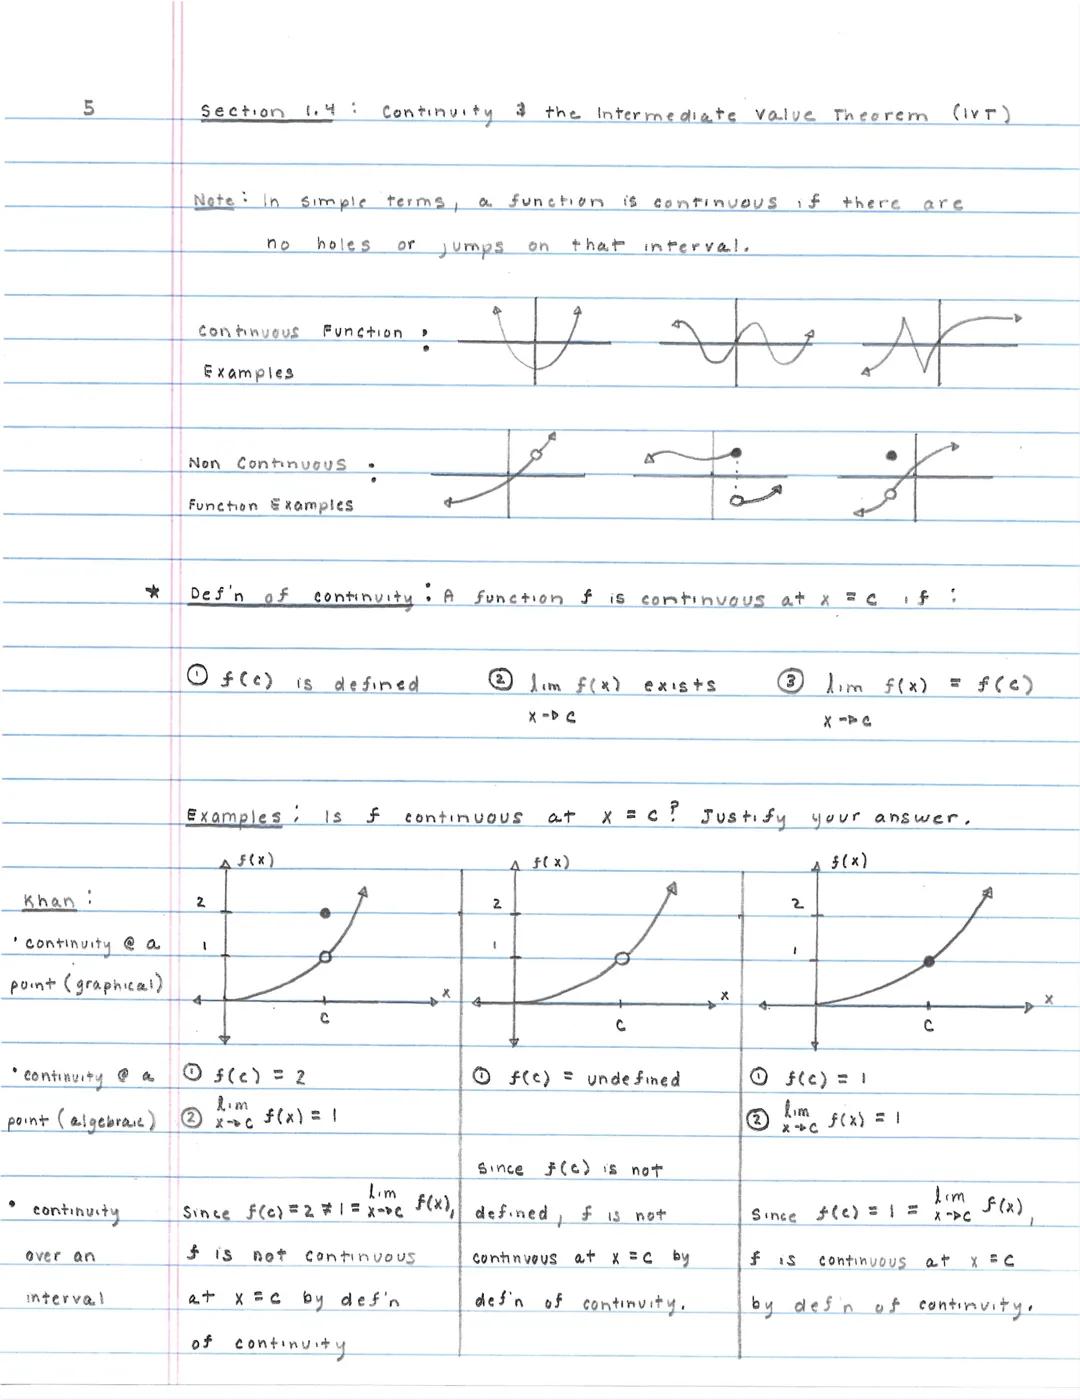 5
Section 1.4 : Continuity & the Intermediate Value Theorem (IVT)
Note : In simple terms, a function is continuous if there are
no holes or jumps on that interval.
Continuous Function :
Examples
Non Continuous :
Function Examples
* Def'n of continuity : A function f is continuous at x = c if :
① f(c) is defined ② lim f(x) exists ③ lim f(x) = f(c)
x→c x→c
Examples : Is f continuous at x = c? Justify your answer.
Khan :
• continuity @ a
point (graphical)
• continuity @ a
point (algebraic)
• continuity
over an
interval
f(x)
2
1
x
c
① f(c) = 2
② lim x→c f(x) = 1
Since f(c) = 2 ≠ 1 = lim x→c f(x),
f is not continuous
at x = c by def'n
of continuity
f(x)
2
1
x
c
① f(c) = undefined
Since f(c) is not
defined, f is not
continuous at x = c by
def'n of continuity.
f(x)
2
1
x
c
① f(c) = 1
② lim x→c f(x) = 1
Since f(c) = 1 = lim x→c f(x),
f is continuous at x = c
by def'n of continuity.